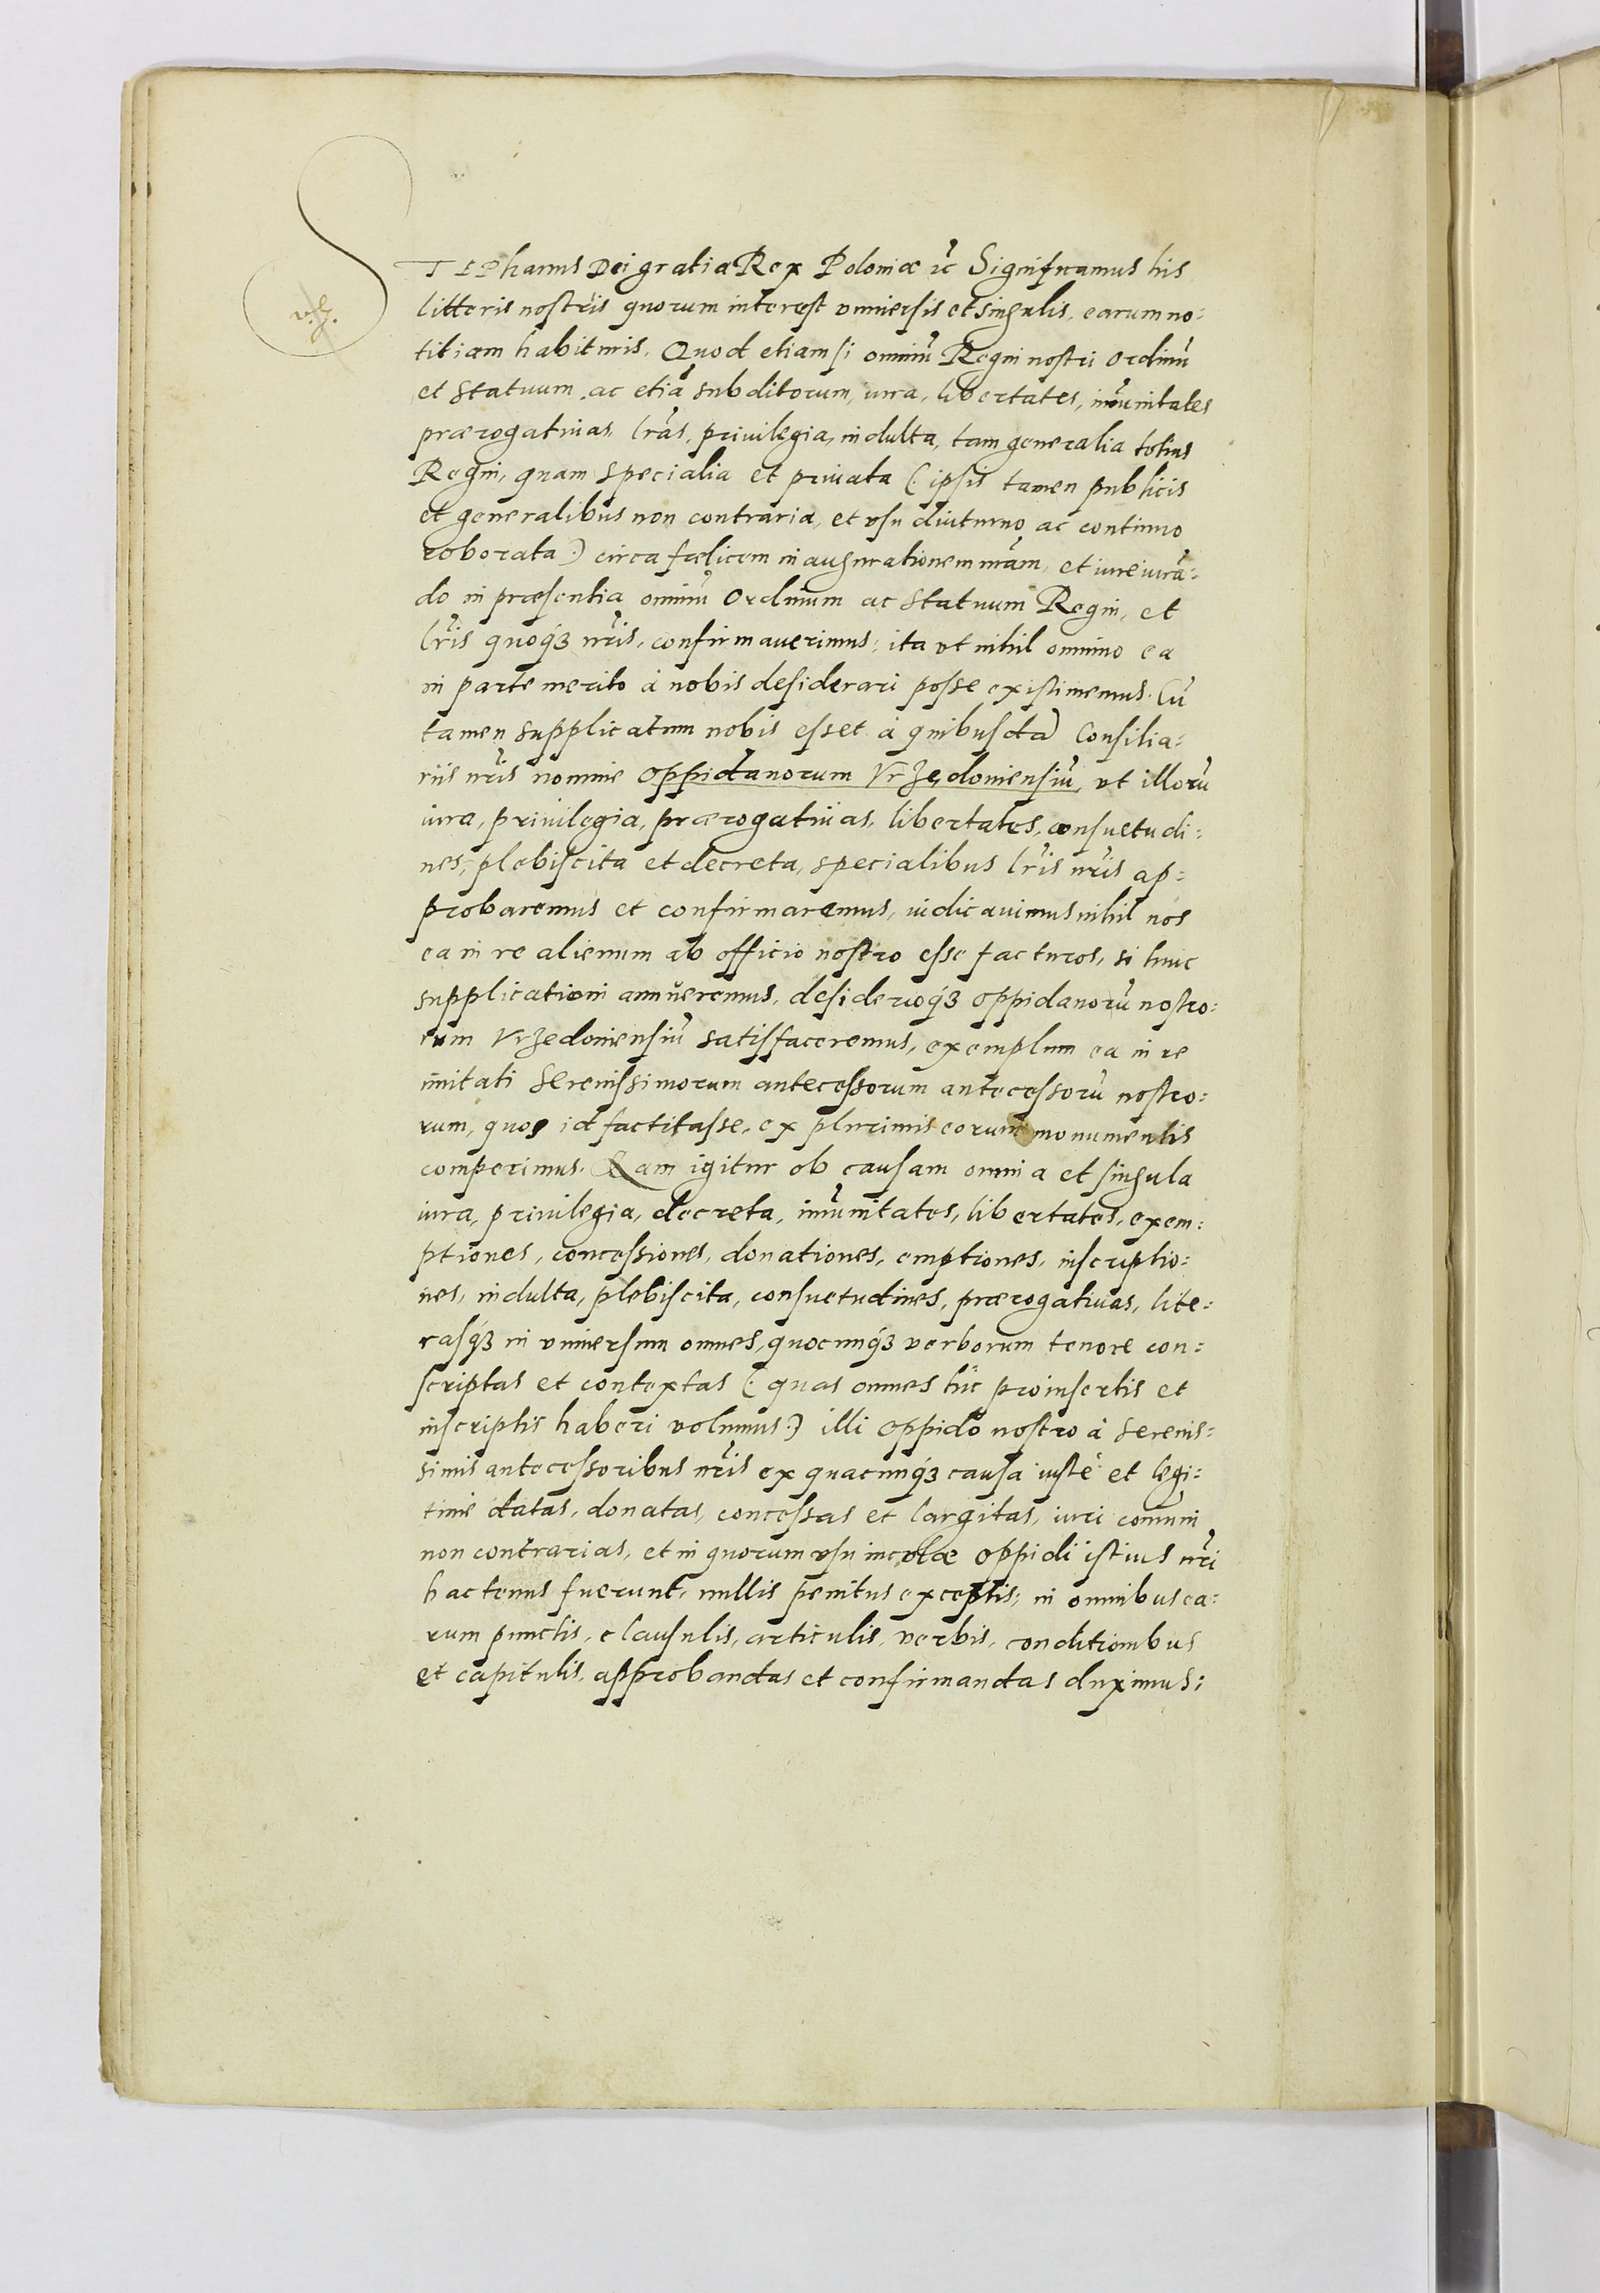 STEPhanus Dei gratia Rex Poloniæ ꝛc̃ Significamus his
litteris nostris quorum interest vniuersis et singulis, earum no:
titiam habituris. Quod etiamsi omniū Regni nostri Ordinū
et Statuum, ac etiā subditorum, iura, libertates, imūnitates
prærogatiuas, lr̃as, priuilegia, indulta, tam generalia totius
Regni, quam specialia et priuata (: ipsis tamen publicis
et generalibus non contraria, et vsu diuturno ac continuo
roborata :) circa fœlicem inaugurationem nr̃am, et iureiurā:
do in præsentia omniū Ordinum ac Statuum Regni, et
lr̃is quoqȝ nr̃is, confirmauerimus: ita vt nihil omnino ea
in parte merito à nobis desiderari posse existimemus. Cū
tamen supplicatum nobis esset à quibusdā Consilia:
riis nr̃is nomine oppidanorum Vrzedouiensiū, vt illorū
iura, priuilegia, prærogatiuas, libertates, consuetudi:
nes, plebiscita et decreta, specialibus lr̃is nr̃is ap:
probaremus et confirmaremus, iudicauimus nihil nos
ea in re alienum ab officio nostro esse facturos, si huic
supplicationi annueremus, desiderioqȝ oppidanorū nostro:
rum Vrzedouiensiū satisfaceremus, exemplum ea in re
imitati Serenissimorum antecessorum antecessorū nostro:
rum, quos id factitasse, ex plurimis eorum monumentis
comperimus. Quam igitur ob causam omnia et singula
iura, priuilegia, decreta, imūnitates, libertates, exem:
ptiones, concessiones, donationes, emptiones, inscriptio:
nes, indulta, plebiscita, consuetudines, prærogatiuas, lite:
rasqȝ in vniuersum omnes, quocunqȝ verborum tenore con:
scriptas et contextas (: quas omnes hic pro insertis et
inscriptis haberi volumus :) illi oppido nostro à Serenis:
simis antecessoribus nr̃is ex quacunqȝ causa iustè et legi:
time datas, donatas, concessas et largitas, iuri comūni
non contrarias, et in quorum vsu incolæ oppidi istius nr̃i
hactenus fuerunt, nullis penitus exceptis, in omnibus ea:
rum punctis, clausulis, articulis, verbis, conditionibus
et capitulis, approbandas et confirmandas duximus: